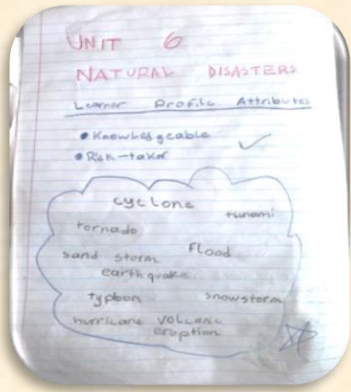 UNIT 6
NATURAL DISASTERS
Learner Profile Attributes
• Knowledgeable
• Risk-taker
cyclone
tsunami
tornado
sand storm Flood
earthquake
typhoon snowstorm
hurricane volcanic
eruption